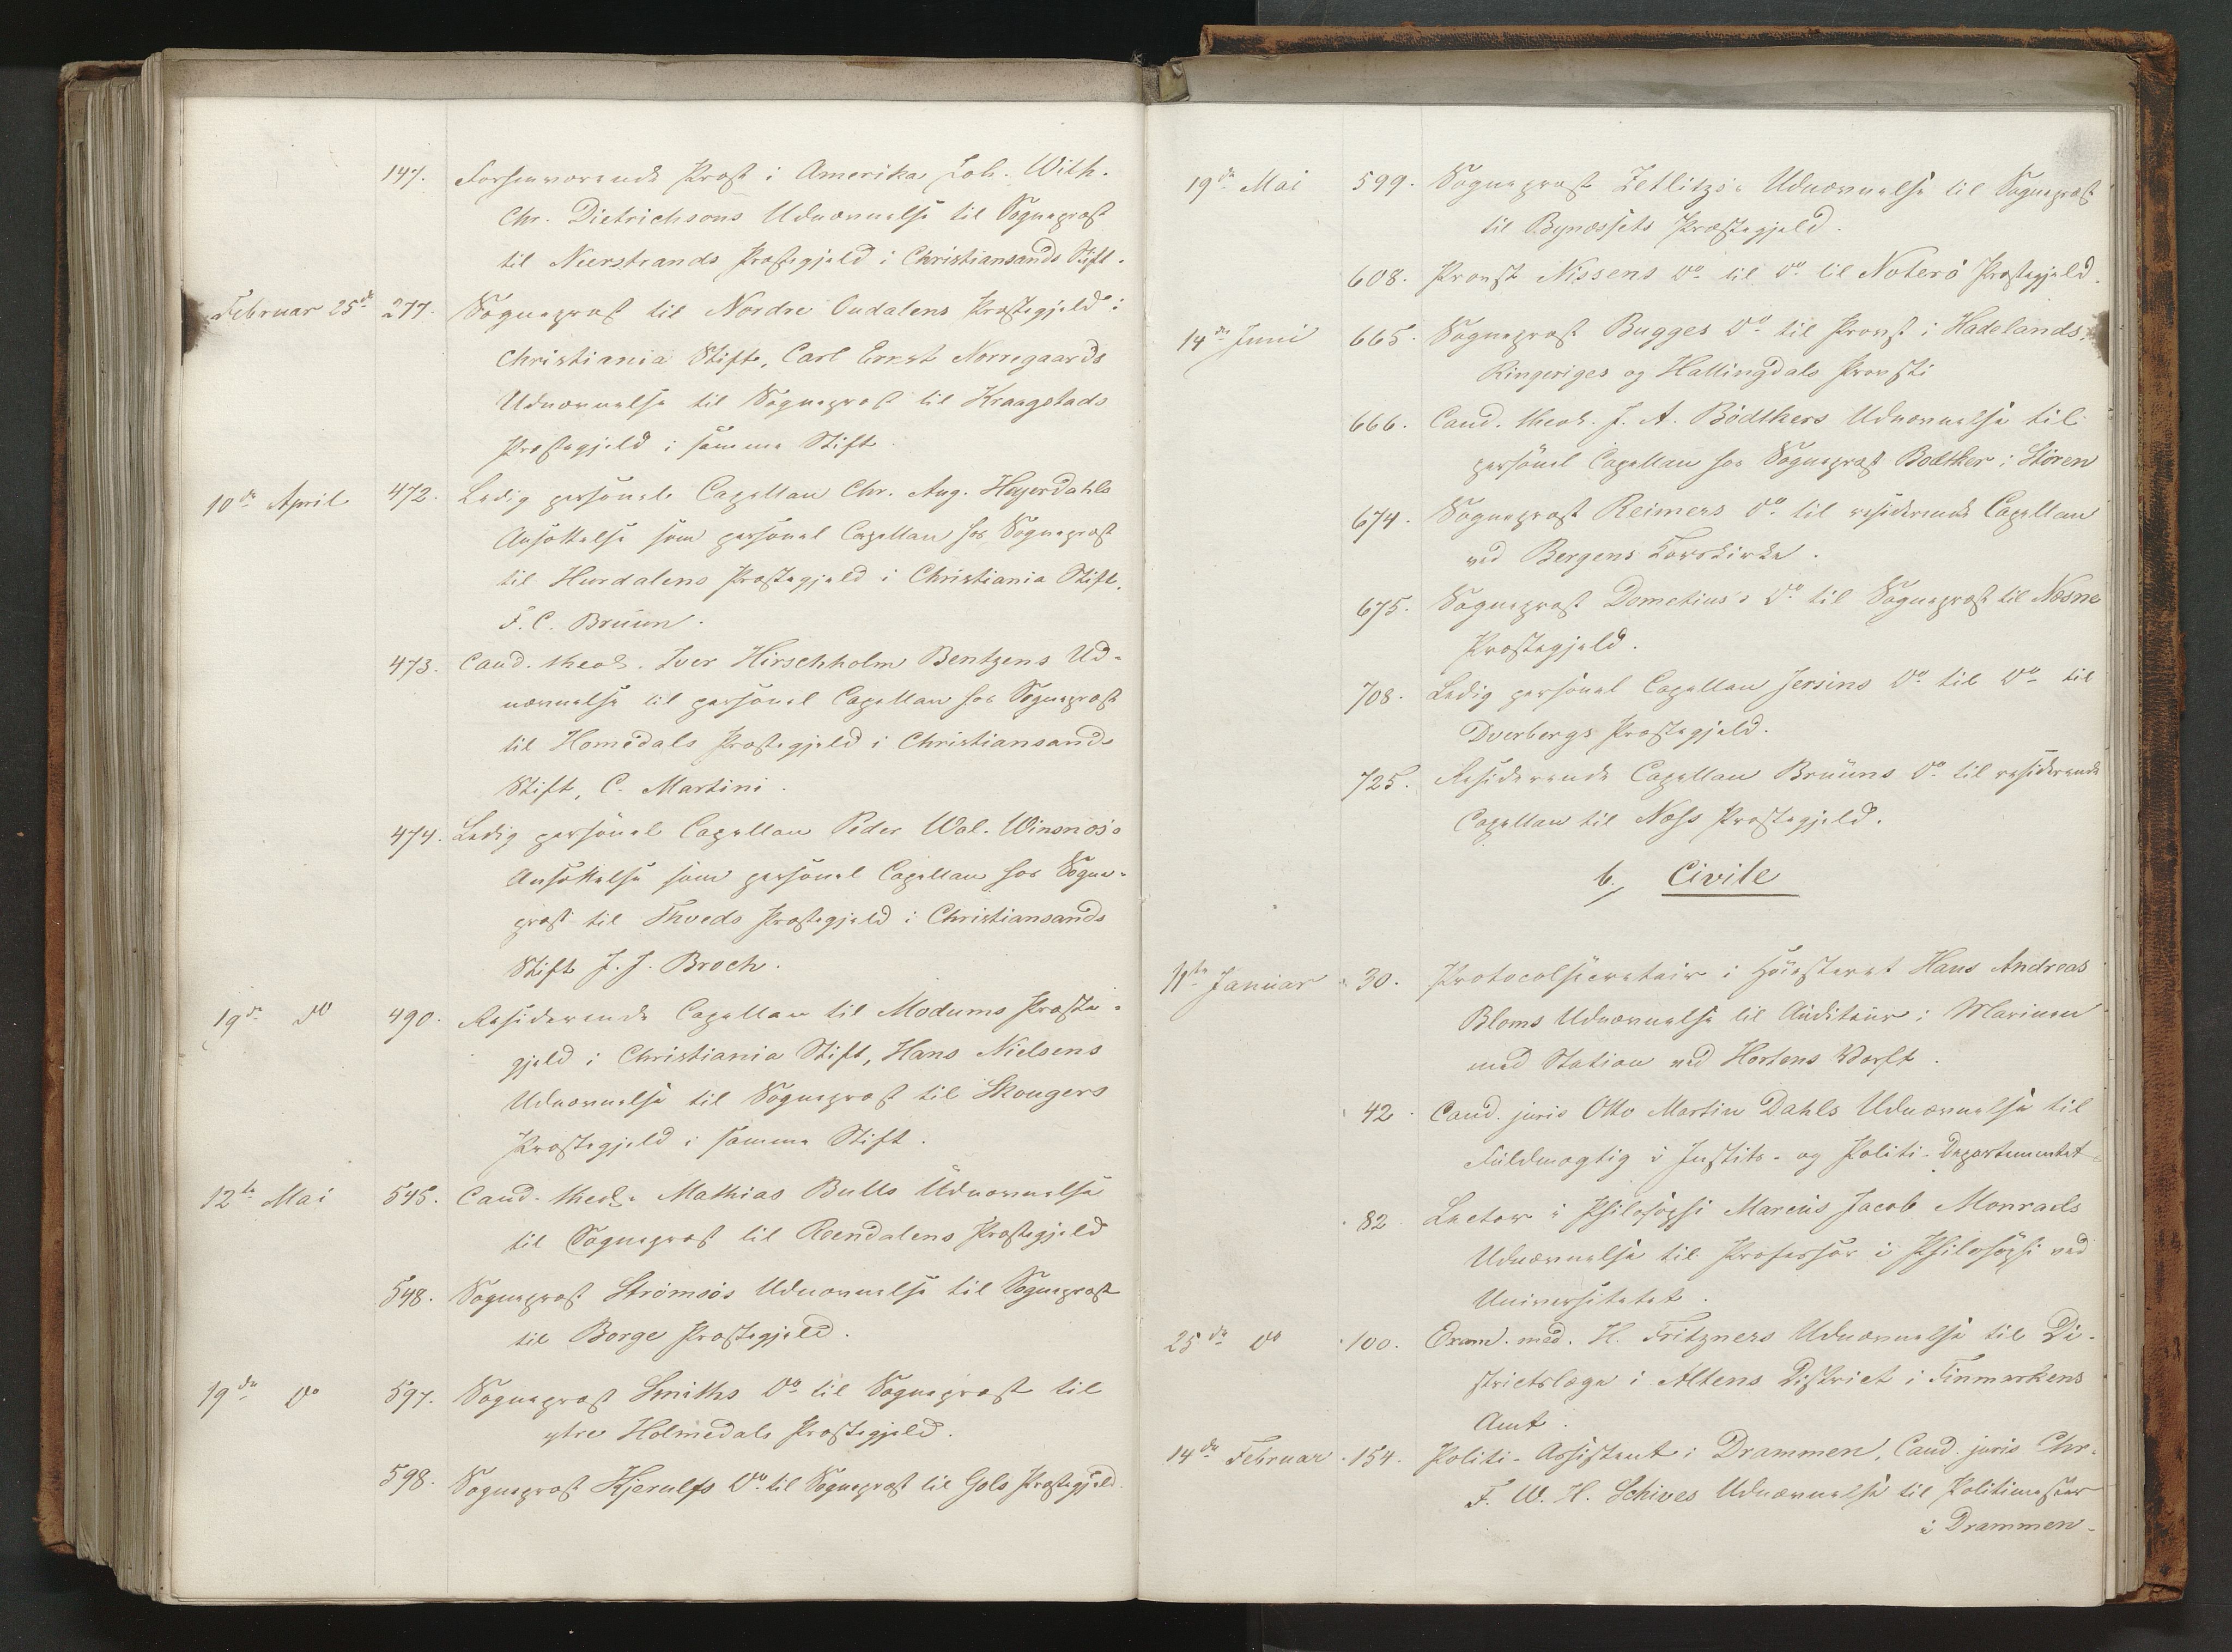 147. Forhenværende Præst i Amerika Joh. Wilh.
Chr. Dietrichsons Udnævnelse til Sognepræst
til Neerstrands Præstegjeld i Christiansands Stift.
Februar 25de 277. Sognepræst til Nordre Oudalens Præstegjeld i
Christiania Stift, Carl Ernst Nørregaards
Udnævnelse til Sognepræst til Kraagstads
Præstegjeld i samme Stift.
10de April 472. Ledig personel Capellan Chr. Aug. Heyerdahls
Ansættelse som personel Capellan hos Sognepræst
til Hurdalens Præstegjeld i Christiania Stift,
F. C. Bruun.
473. Cand. theol. Iver Hirschholm Bentzens Ud-
nævnelse til personel Capellan hos Sognepræst
til Homedals Præstegjeld i Christiansands
Stift, C. Martini.
474. Ledig personel Capellan Peder Wal. Winsnes's
Ansættelse som personel Capellan hos Sogne-
præst til Thveds Præstegjeld i Christiansands
Stift J. J. Broch.
19de do 490. Residerende Capellan til Modums Præste-
gjeld i Christiania Stift, Hans Nielsens
Udnævnelse til Sognepræst til Skougers
Præstegjeld i samme Stift.
12te Mai 545. Cand. theol. Mathias Bulls Udnævnelse
til Sognepræst til Reendalens Præstegjeld
548. Sognepræst Strømsøs Udnævnelse til Sognepræst
til Borge Præstegjeld.
19de do 597. Sognepræst Smiths Do til Sognepræst til
ytre Holmedals Præstegjeld.
598. Sognepræst Kjerulfs Do til Sognepræst til Gols Præstegjeld.
19de Mai 599. Sognepræst Zetlitz's Udnævnelse til Sognepræst
til Bynæssets Præstegjeld.
608. Provst Nissens Do til Do til Nøterø Præstegjeld.
14de Juni 665. Sognepræst Bugges Do til Provst i Hadelands,
Ringeriges og Hallingdals Provsti
666. Cand. theol. J. A. Bødtkers Udnævnelse til
personel Capellan hos Sognepræst Bødtker i Støren
674. Sognepræst Reimers Do til residerende Capellan
ved Bergens Korskirke.
675. Sognepræst Dometius's Do til Sognepræst til Næsne
Præstegjeld.
708. Ledig personel Capellan Jersins Do til Do til
Dverbergs Præstegjeld.
725. Residerende Capellan Bruuns Do til residerende
Capellan til Næss Præstegjeld.
b, Civile
11te Januar 30. Protocolsecretair i Høiesteret Hans Andreas
Bloms Udnævnelse til Auditeur i Marinen
med Station ved Hortens Værft.
42. Cand. juris Otto Martin Dahls Udnævnelse til
Fuldmægtig i Justits- og Politi-Departementet
82. Lector i Philosophi Marcus Jacob Monrads
Udnævnelse til Professor i Philosophi ved
Universitetet.
25de do 100. Exam. med. H. Fritzners Udnævnelse til Di-
strictslæge i Altens District i Finmarkens
Amt.
14de Februar 154. Politi-Assistent i Drammen, Cand. juris Chr.
F. W. H. Schives Udnævnelse til Politimester
i Drammen.